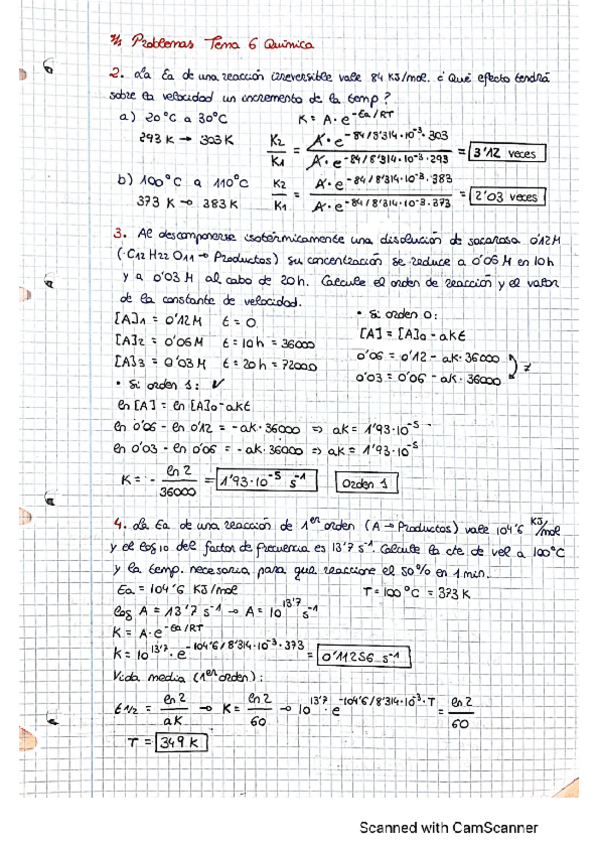 Problemas Tema 6 Química
2. La Ea de una reacción irreversible vale 84 KJ/mol. ¿Qué efecto tendrá
sobre la velocidad un incremento de la temp?
a) 20°C a 30°C K = A·e^-Ea/RT
293 K → 303 K K2/K1 = A·e^-84/8'314·10^-3·303 / A·e^-84/8'314·10^-3·293 = 3'12 veces
b) 100°C a 110°C K2/K1 = A·e^-84/8'314·10^-3·383 / A·e^-84/8'314·10^-3·373 = 2'03 veces
373 K → 383 K
3. Al descomponerse isotérmicamente una disolución de sacarosa 0'12M
(C12 H22 O11 → Productos) su concentración se reduce a 0'06 M en 10h
y a 0'03 M al cabo de 20h. Calcule el orden de reacción y el valor
de la constante de velocidad.
[A]1 = 0'12M t = 0
[A]2 = 0'06M t = 10h = 36000
[A]3 = 0'03M t = 20h = 72000
• Si orden 0:
[A] = [A]0 - akt
0'06 = 0'12 - ak·36000
0'03 = 0'06 - ak·36000 ≠
• Si orden 1: ✓
ln [A] = ln [A]0 - akt
ln 0'06 - ln 0'12 = -ak·36000 ⇒ ak = 1'93·10^-5
ln 0'03 - ln 0'06 = -ak·36000 ⇒ ak = 1'93·10^-5
K = - ln 2 / 36000 = 1'93·10^-5 s^-1 Orden 1
4. La Ea de una reacción de 1er orden (A → Productos) vale 104'6 KJ/mol
y el log10 del factor de frecuencia es 13'7 s^-1. Calcule la cte de vel a 100°C
y la temp. necesaria para que reaccione el 50% en 1 min.
Ea = 104'6 KJ/mol T = 100°C = 373K
log A = 13'7 s^-1 → A = 10^13'7 s^-1
K = A·e^-Ea/RT
K = 10^13'7·e^-104'6/8'314·10^-3·373 = 0'11256 s^-1
Vida media (1er orden):
t1/2 = ln 2 / ak → K = ln 2 / 60 → 10^13'7·e^-104'6/8'314·10^-3·T = ln 2 / 60
T = 349 K
Scanned with CamScanner